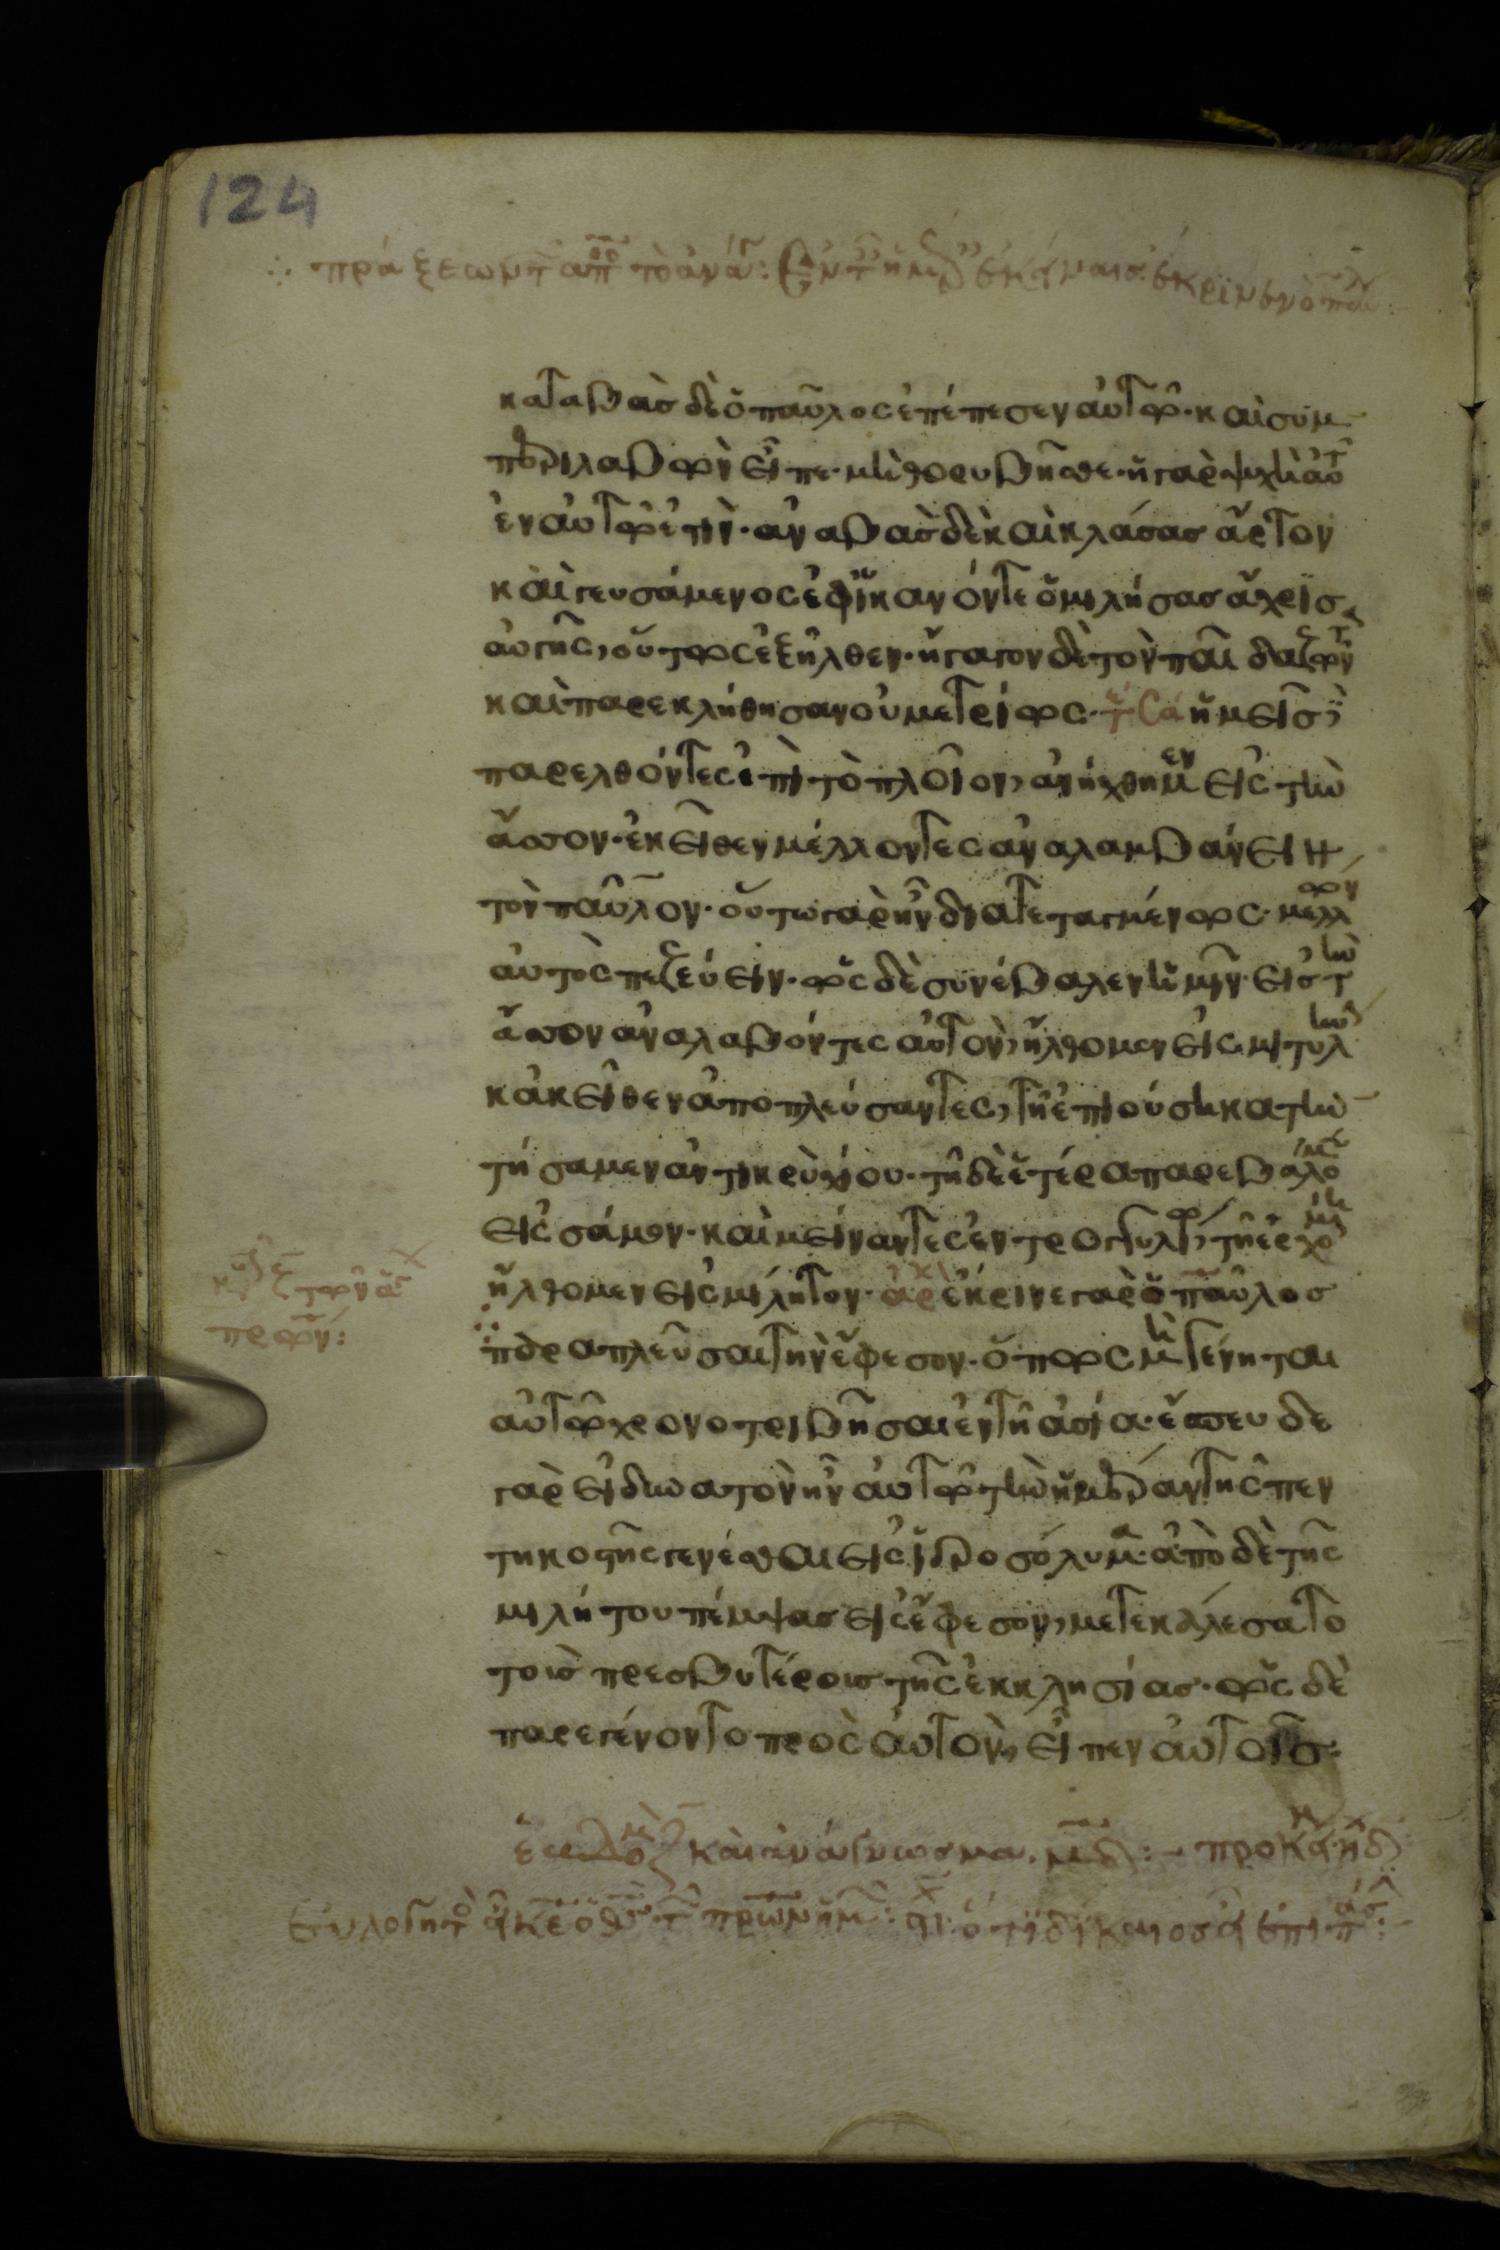 124
∴ πράξεων τ ἀπο τὸ ἀνάγ: Ἐν τ ἡμ ἐκείναις ἔκρινεν ὁ παυλ:
καταβὰς δὲ ὁ παῦλος ἐπέπεσεν αὐτῶ· καὶ συμ
περιλαβὼν εἶπε· μὴ θορυβῆσθε· ἡ γὰρ ψυχὴ αὐτ
ἐν αὐτῶ ἐστὶν· ἀναβὰς δὲ καὶ κλάσας ἄρτον
καὶ γευσάμενος ἐφ' ἱκανόν τε ὁμιλήσας ἄχρις
αὐγῆς, οὕτως ἐξῆλθεν· ἤγαγον δὲ τὸν παῖδα ζῶντ
καὶ παρεκλήθησαν οὐ μετρίως· ἡμεῖς
παρελθόντες ἐπὶ τὸ πλοῖον, ἀνήχθημεν εἰς τὴν
ἄσσον· ἐκεῖθεν μέλλοντες ἀναλαμβάνειν
τὸν παῦλον· οὕτω γὰρ ἦν διατεταγμένος· μέλλων
αὐτὸς πεζεύειν· ὡς δὲ συνέβαλεν ἡμῖν· εἰς τὴν
ἄσσον ἀναλαβόντες αὐτὸν, ἤλθομεν εἰς μιτυλήν
κἀκεῖθεν ἀποπλεύσαντες, τῆ ἐπιούση κατην
τήσαμεν ἀντικρὺ χίου· τῆ δὲ ἑτέρα παρεβάλομεν
εἰς σάμον· καὶ μείναντες ἐν τρογυλίω, τῆ ἐχομένη
ἤλθομεν εἰς μίλητον· ἀρχ ἔκρινε γὰρ ὁ παῦλος
κυ ζ τῶν ἁγ
πρων:
παραπλεῦσαι τὴν ἔφεσον· ὅπως μὴ γένηται
αὐτῶ χρονοτριβῆσαι ἐν τῆ ἀσία· ἔσπευδε
γὰρ εἰ δυνατὸν ἦν αὐτῶ τὴν ἡμέραν τῆς πεν
τηκοστῆς γενέσθαι εἰς ἱεροσόλυμα· ἀπὸ δὲ τῆς
μιλήτου πέμψας εἰς ἔφεσον, μετεκαλέσατο
τοὺς πρεσβυτέροις τῆς ἐκκλησίας· ὡς δὲ
παρεγένοντο πρὸς αὐτὸν, εἶπεν αὐτοῖς·
καὶ ἀνάγνωσμα. μδ:- προκ ἦ δ
εὐλογητὸ ἦ κε ὁ θσ τ πρων ἡμ: στι: ὅτι δίκαιος εἶ ἐπι πασ: